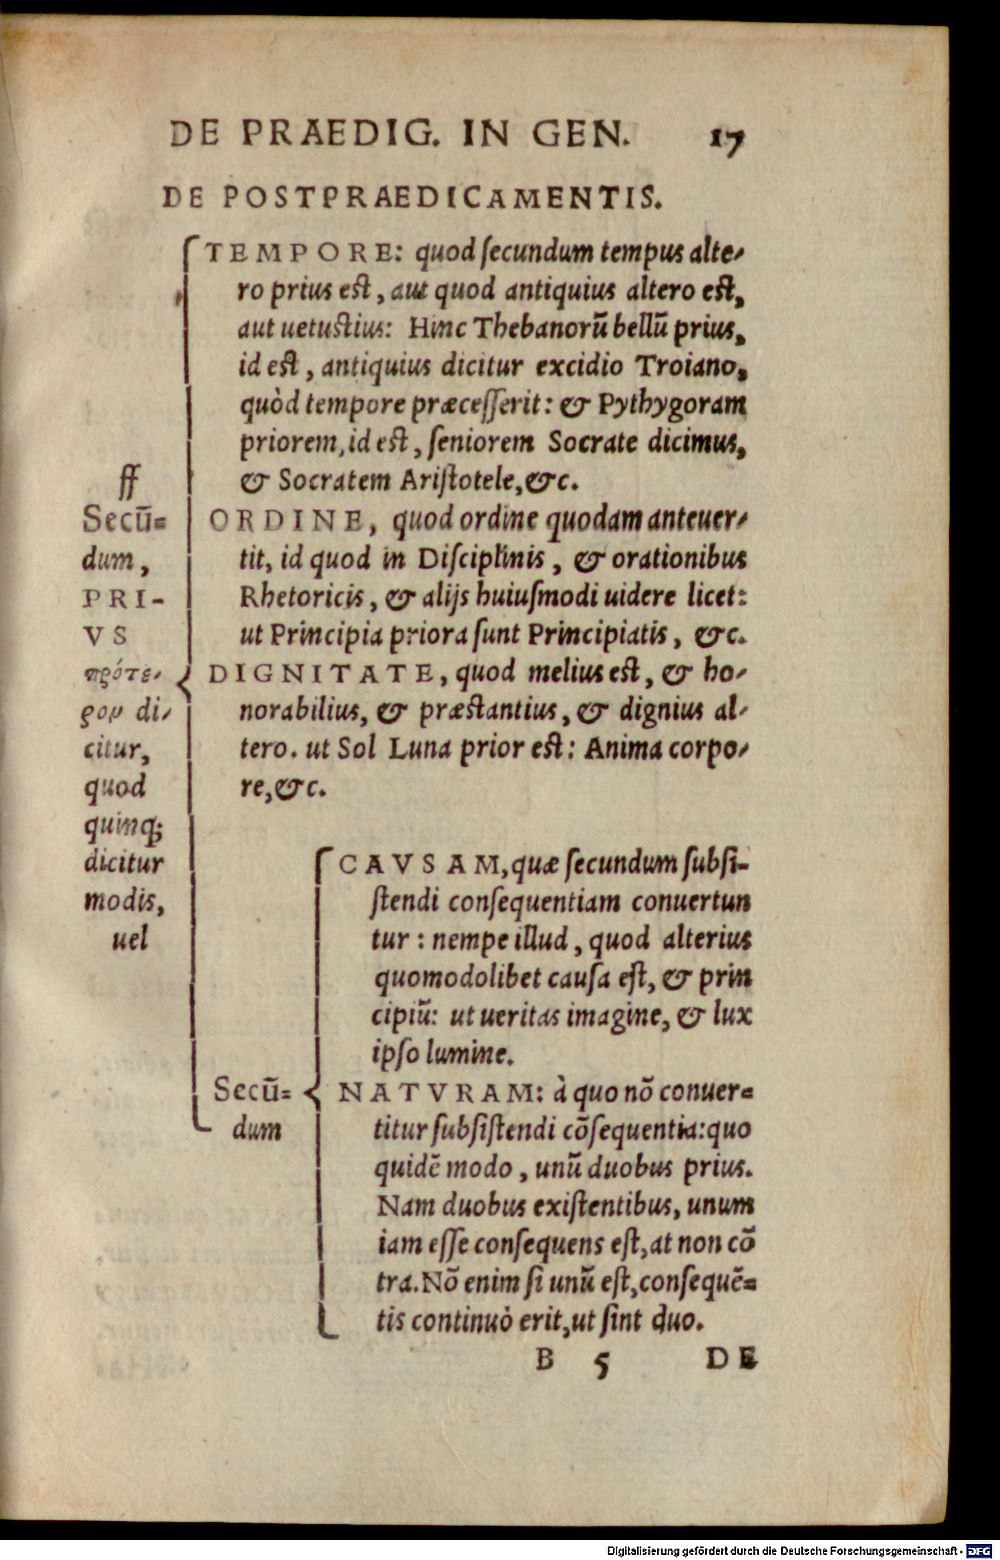 DE PRAEDIG. IN GEN. 17
DE POSTPRAEDICAMENTIS.
ff
Secũ=
dum,
PRI-
VS
πρότε-
ρον di-
citur,
quod
quinq;
dicitur
modis,
uel
TEMPORE: quod ſecundum tempus alte-
ro prius est, aut quod antiquius altero est,
aut uetustius: Hinc Thebanorũ bellũ prius,
id est, antiquius dicitur excidio Troiano,
quòd tempore præceſſerit: & Pythygoram
priorem, id est, ſeniorem Socrate dicimus,
& Socratem Ariſtotele, &c.
ORDINE, quod ordine quodam anteuer-
tit, id quod in Diſciplinis, & orationibus
Rhetoricis, & alijs huiuſmodi uidere licet:
ut Principia priora ſunt Principiatis, &c.
DIGNITATE, quod melius est, & ho-
norabilius, & præstantius, & dignius al-
tero. ut Sol Luna prior est: Anima corpo-
re, &c.
Secũ=
dum
CAVSAM, quæ ſecundum ſubſi-
ſtendi conſequentiam conuertun
tur: nempe illud, quod alterius
quomodolibet cauſa eſt, & prin
cipiũ: ut ueritas imagine, & lux
ipſo lumine.
NATVRAM: à quo nõ conuer=
titur ſubſiſtendi cõſequentia: quo
quidẽ modo, unũ duobus prius.
Nam duobus exiſtentibus, unum
iam eſſe conſequens eſt, at non cõ
tra. Nõ enim ſi unũ eſt, conſequẽ=
tis continuò erit, ut ſint duo.
B 5 DE
Digitalisierung gefördert durch die Deutsche Forschungsgemeinschaft - DFG